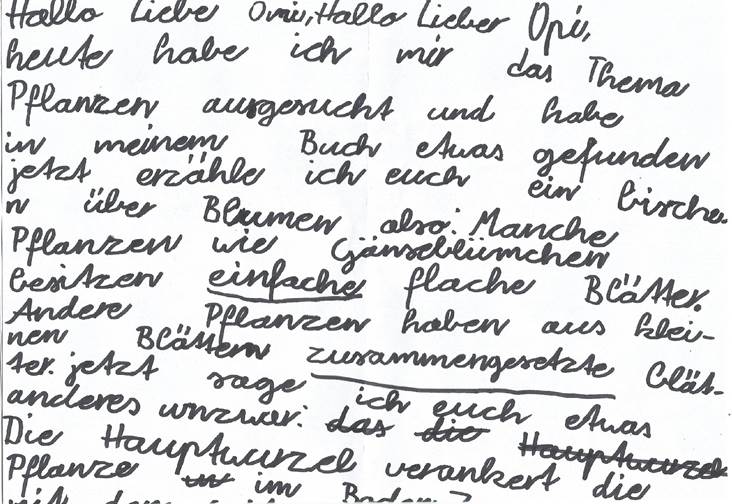 Hallo Liebe Omi, Hallo Lieber Opi,
heute habe ich mir das Thema
Pflanzen ausgesucht und habe
in meinem Buch etwas gefunden
jetzt erzähle ich euch ein bische
n über Blumen also: Manche
Pflanzen wie Gänseblümchen
besitzen einfache flache Blätter.
Andere Pflanzen haben aus klei-
nen Blättern zusammengesetzte Blät-
ter. jetzt sage ich euch etwas
anderes unzwar: das die Hauptwurzel
Die Hauptwurzel verankert die
Pflanze im Boden